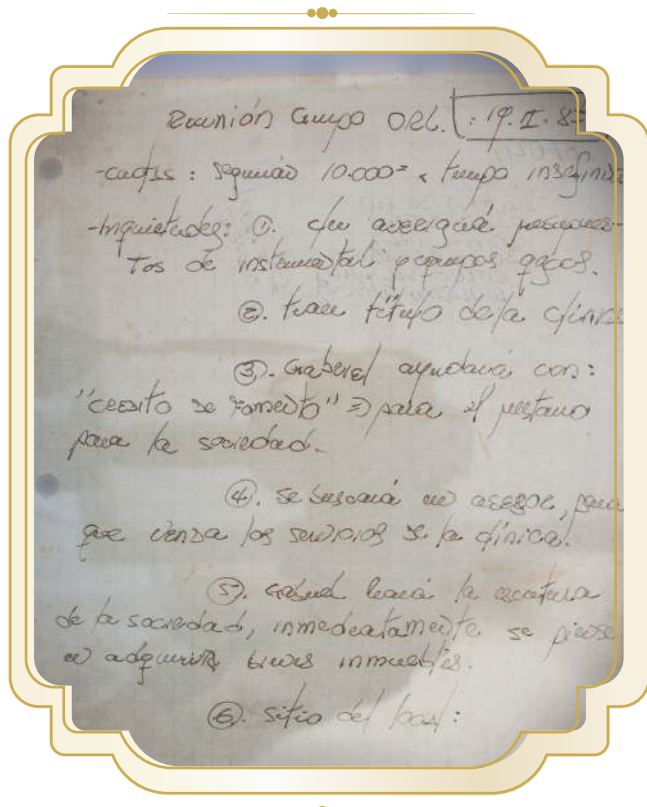 Reunión Grupo ORL. : 19.II.8
-cuotas : seguirán 10.000= x tiempo indefinido
-Inquietudes: ①. c/u averiguará presupues-
tos de instrumental y equipos qgcos.
②. traer título de la clínica
③. Gabriel ayudará con:
"credito de fomento" => para el prestamo
para la sociedad.
④. se buscará un asesor, para
que venda los servicios de la clínica.
⑤. Gabriel hará la escritura
de la sociedad, inmediatamente se piensa
en adquirir bienes inmuebles.
⑥. sitio del local: